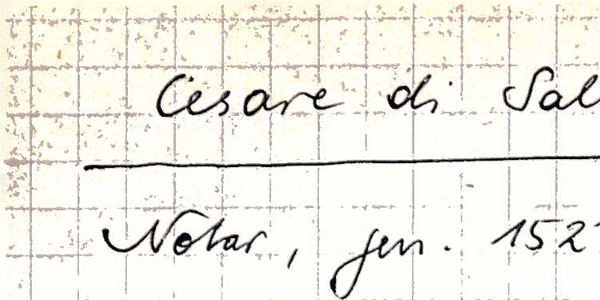 Cesare di Sal
Notar, gen. 152